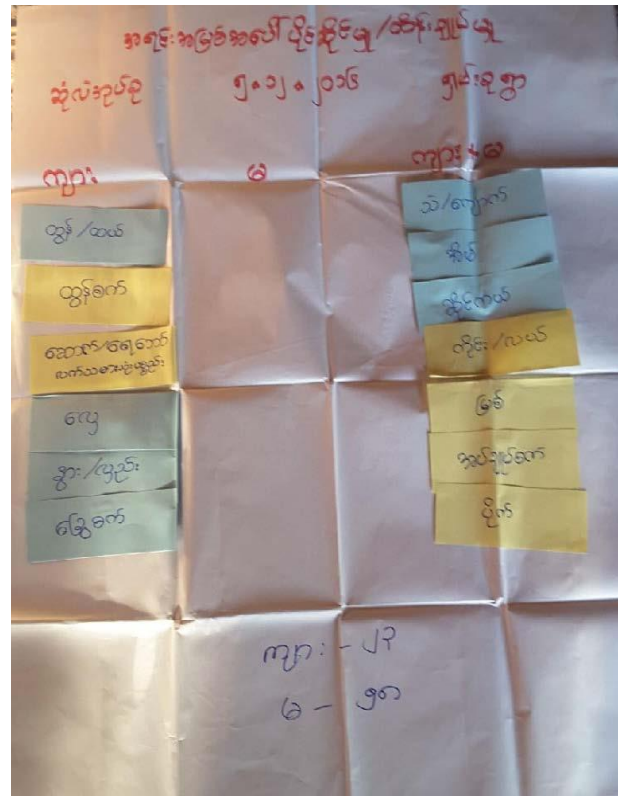 အရင်းအမြစ်အပေါ် ပိုင်ဆိုင်မှု/ထိန်းချုပ်မှု
ဆုံလဲအုပ်စု ၅.၁၂.၂၀၁၆ ရှမ်းစုရွာ
ကျား မ ကျား + မ
ထွန်/ထယ်
ထွန်စက်
လက်သမားပစ္စည်း
လှေ
နွား/လှည်း
ခြွေစက်
သဲ/ကျောက်
အိမ်
ဆိုင်ကယ်
ကိုင်း/လယ်
မြစ်
အပ်ချုပ်စက်
ပိုက်
ကျား - ၂၃
မ -